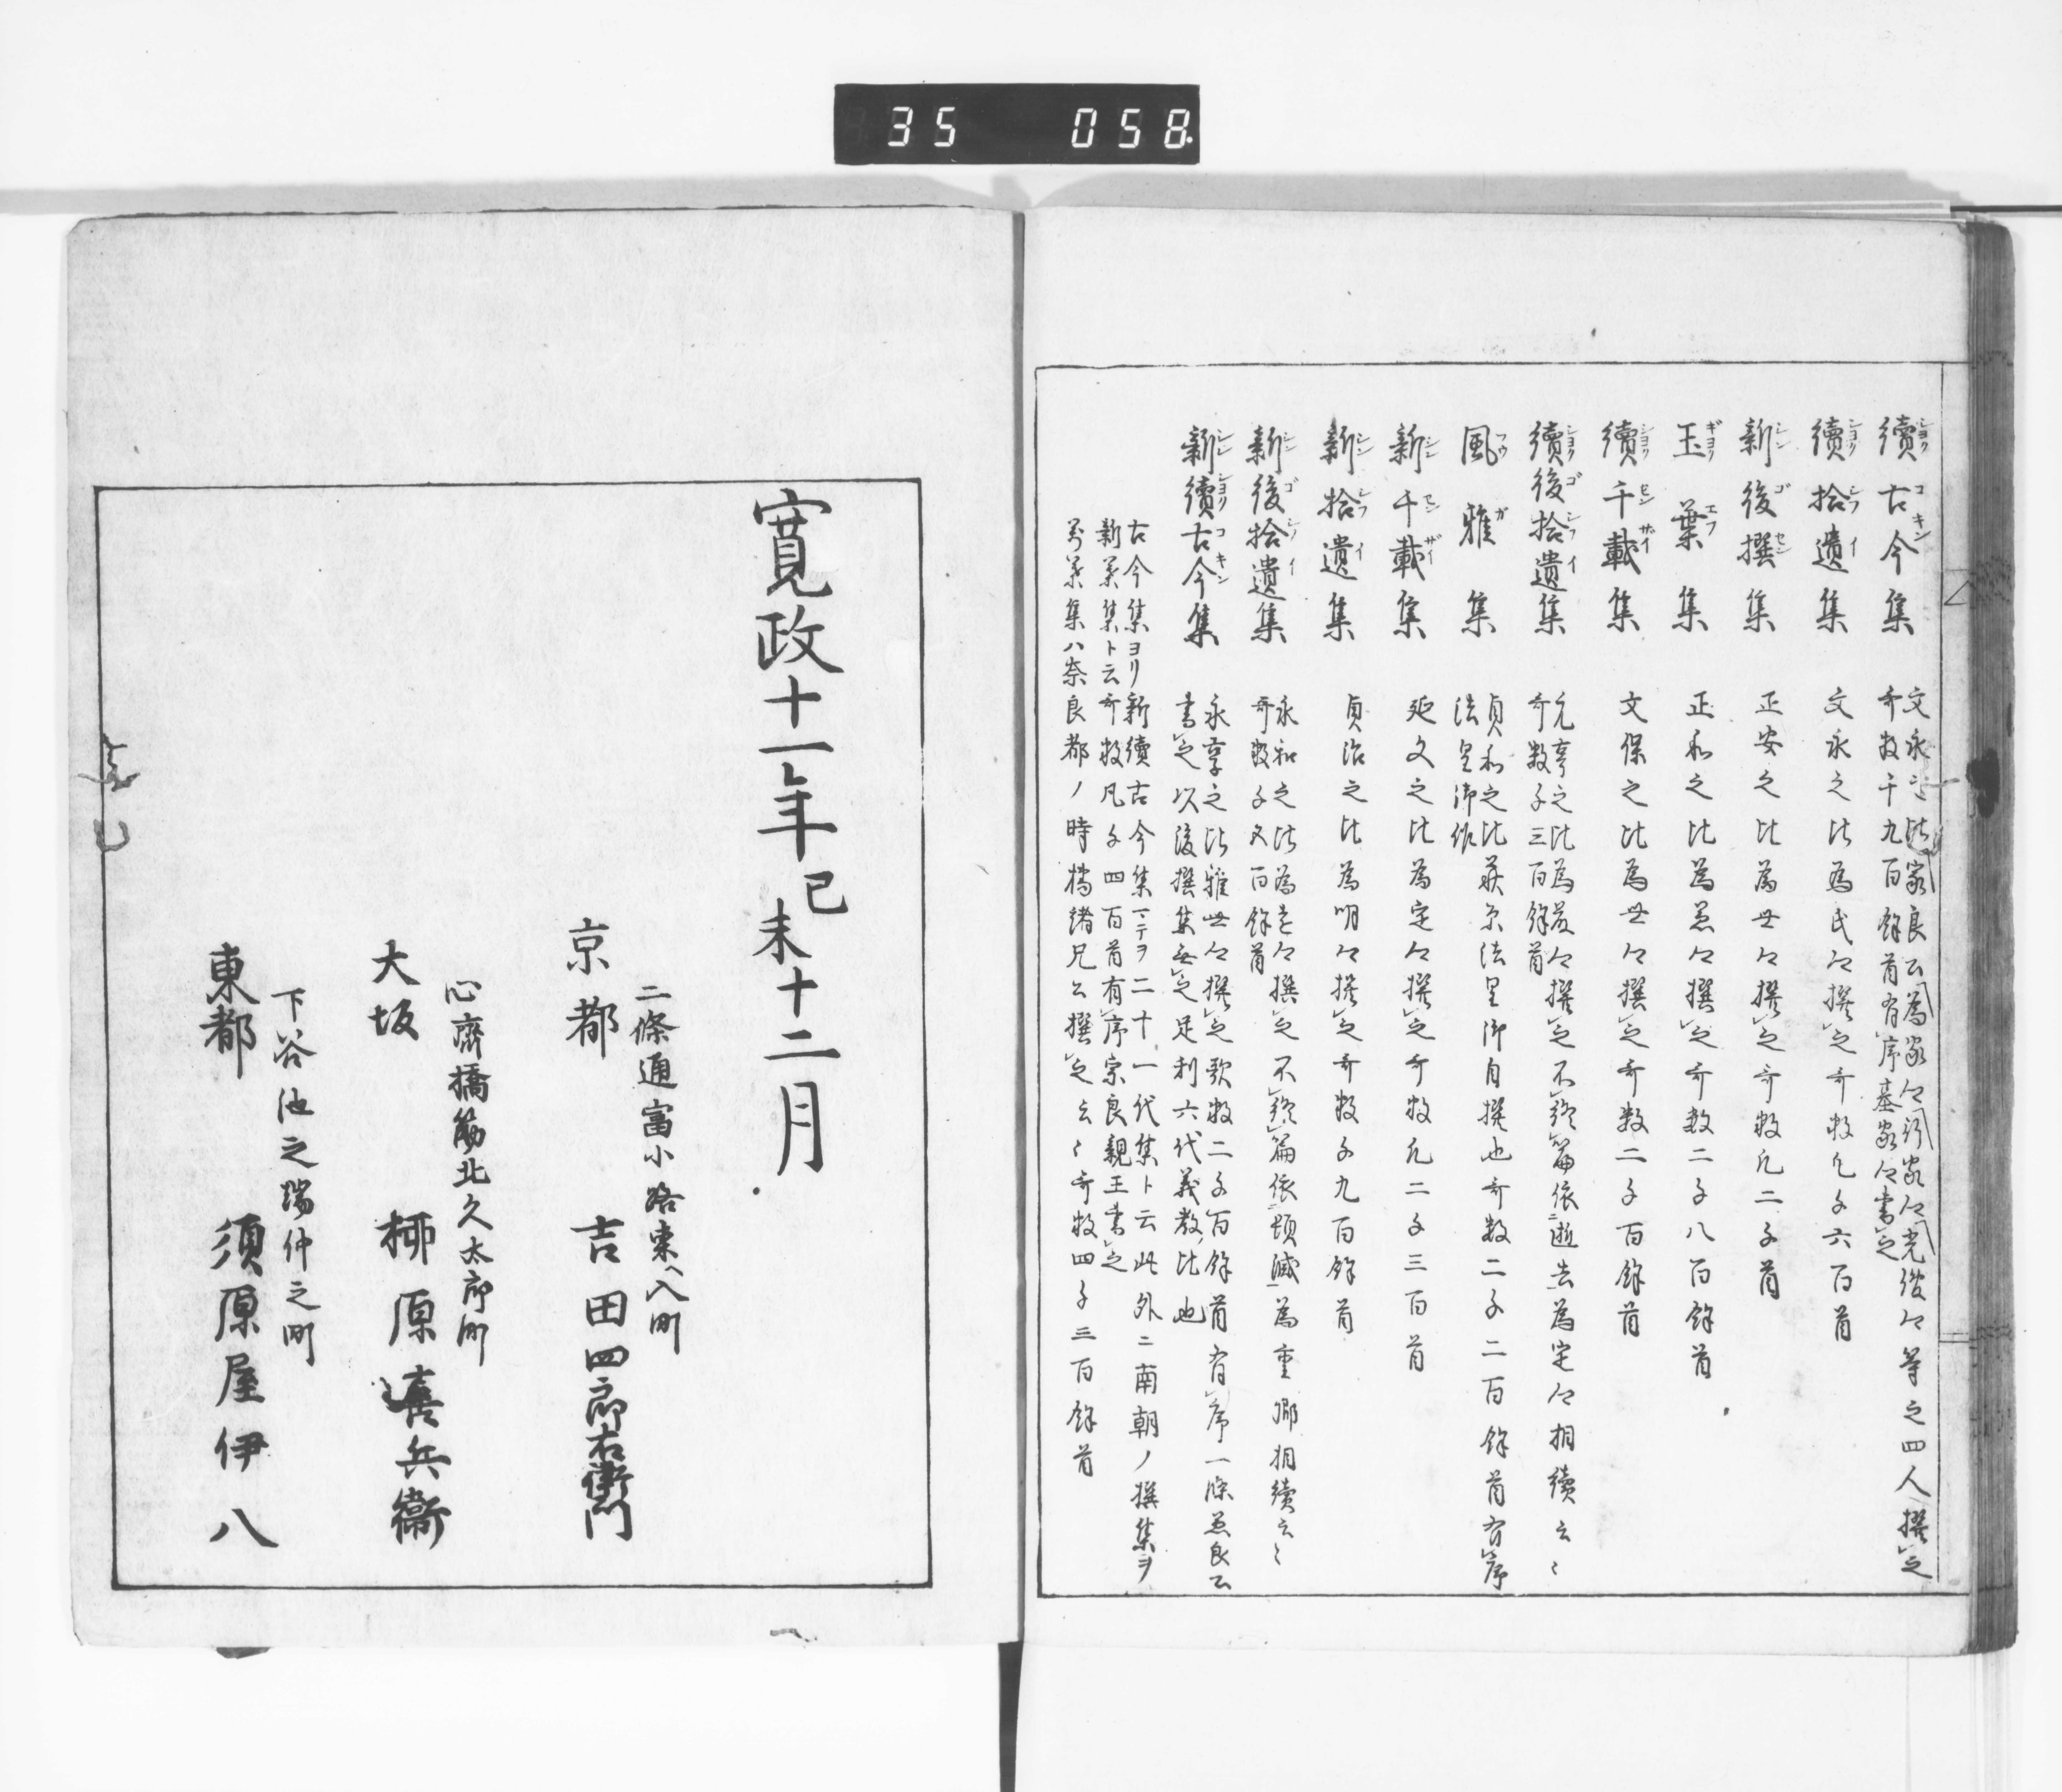 35 058
續古今集
文永之比家良公為家々行家々光俊々等之四人撰之
哥数千九百餘首有序基家々書之
續拾遺集
文永之比為氏々撰之哥数凡千六百首
新後撰集
正安之比為世々撰之哥数凡二千首
玉葉集
正和之比為兼々撰之哥数二千八百餘首
續千載集
文保之比為世々撰之哥数二千百餘首
續後拾遺集
元亨之比為藤々撰之不終篇依逝去為定々相續云々
哥数千三百餘首
風雅集
貞和之比萩原法皇御自撰也哥数二千二百餘首有序
法皇御作
新千載集
延文之比為定々撰之哥数凡二千三百首
新拾遺集
貞治之比為明々撰之哥数千九百餘首
新後拾遺集
永和之比為遠々撰之不終篇依頓滅為重卿相續云々
哥数千五百餘首
新續古今集
永享之比雅世々撰之歌数二千百餘首有序一條兼良公
書之以後撰集無之足利六代義教比也
古今集ヨリ新續古今集マテヲ二十一代集ト云此外ニ南朝ノ撰集ヲ
新葉集ト云哥数凡千四百首有序宗良親王書之
萬葉集ハ奈良都ノ時橘諸兄公撰之云々哥数四千三百餘首
寛政十一年己未十二月
二條通富小路東へ入町
京都 吉田四郎右衛門
心齋橋筋北久太郎町
大坂 柳原喜兵衞
下谷池之端仲之町
東都 須原屋伊八